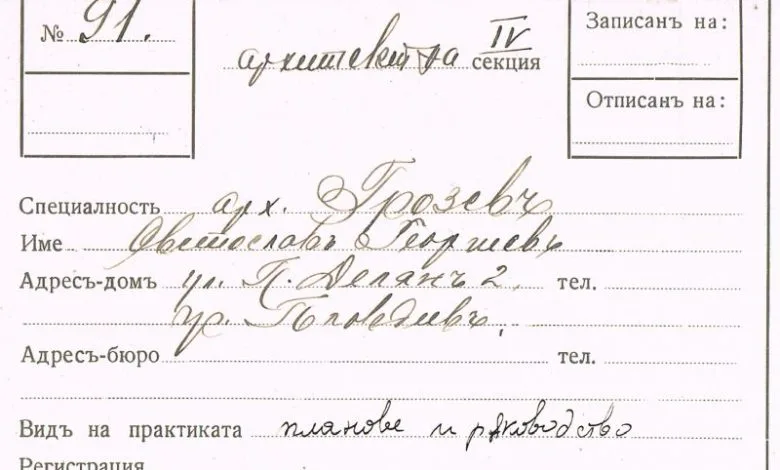 № 91.
архитектура IV секция
Записанъ на:
Отписанъ на:
Специалность арх. Грозевъ
Име Светославъ Георгиевъ
Адресъ-домъ ул. П. Делянъ 2, тел.
гр. Пловдивъ.
Адресъ-бюро тел.
Видъ на практиката планове и рѫководство
Регистрация